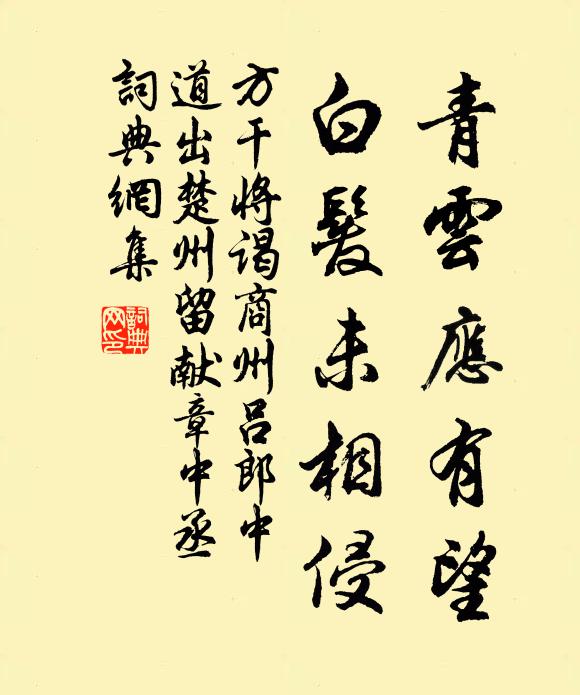 青雲應有望
白髮未相侵
方干将谒商州吕郎中
道出楚州留献章中丞
詞典網集
詞典网印